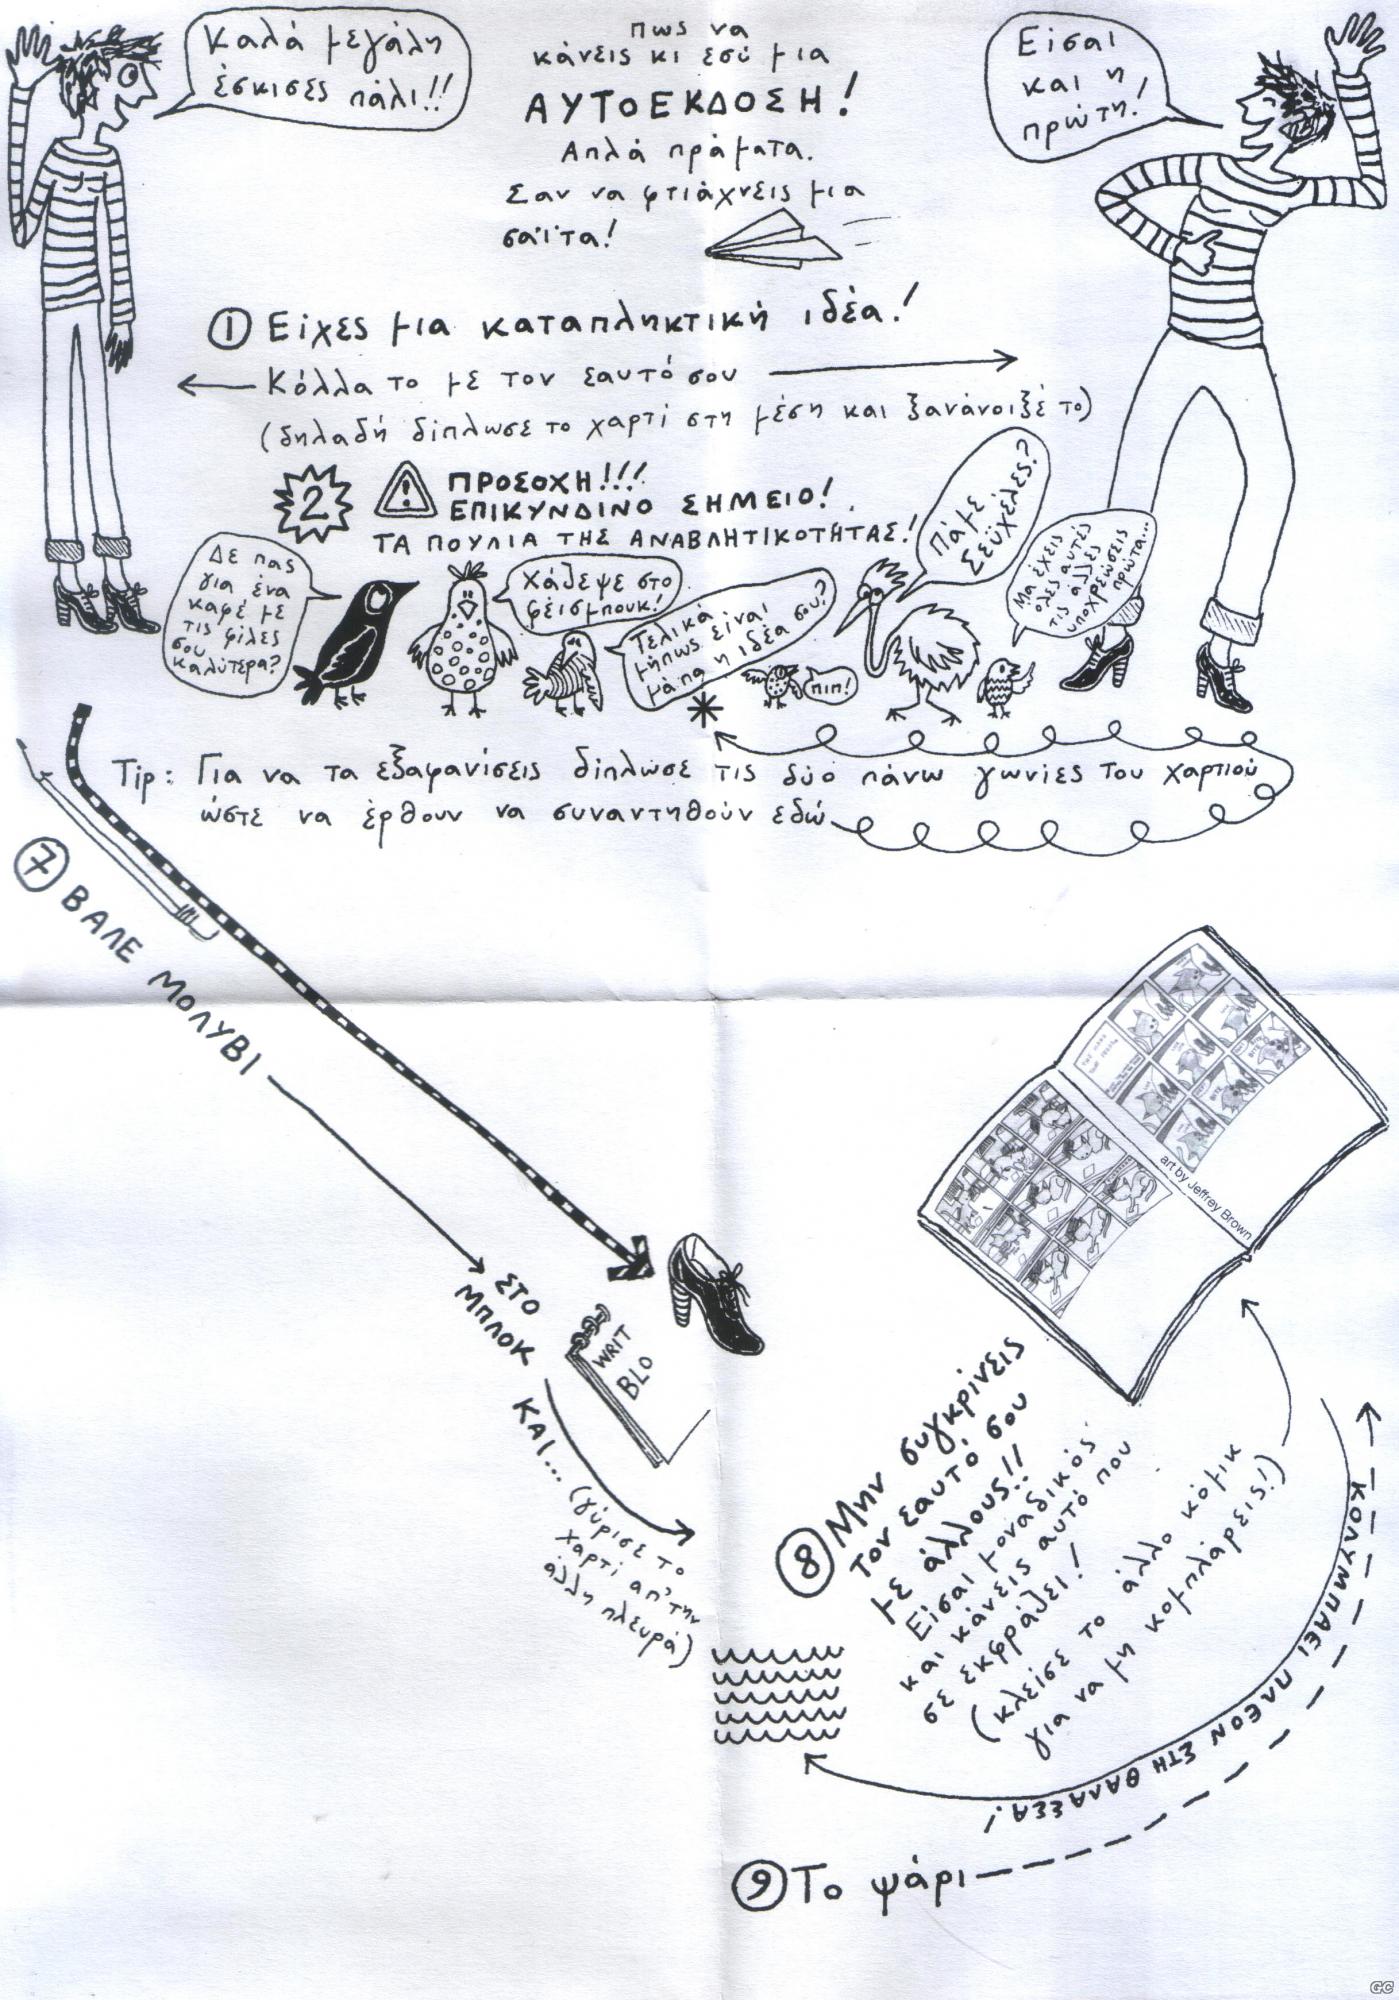 Καλά μεγάλη
έσκισες πάλι!!
Πως να
κάνεις κι εσύ μια
ΑΥΤΟΕΚΔΟΣΗ!
Απλά πράματα.
Σαν να φτιάχνεις μια
σαΐτα!
Είσαι
και η
πρώτη!
① Είχες μια καταπληκτική ιδέα!
Κόλλα το με τον εαυτό σου
(δηλαδή δίπλωσε το χαρτί στη μέση και ξανάνοιξέ το)
2
! ΠΡΟΣΟΧΗ!!!
ΕΠΙΚΥΝΔΙΝΟ ΣΗΜΕΙΟ!
ΤΑ ΠΟΥΛΙΑ ΤΗΣ ΑΝΑΒΛΗΤΙΚΟΤΗΤΑΣ!
Δε πας
για ένα
καφέ με
τις φίλες
σου
καλύτερα?
Χάζεψε στο
φέισμπουκ!
Τελικά
μήπως είναι
μάπα η ιδέα σου?
πιπ!
Πάμε
Σεϋχέλες?
Μα έχεις
όλες αυτές
τις άλλες
υποχρεώσεις
πρώτα...
Tip: Για να τα εξαφανίσεις δίπλωσε τις δύο πάνω γωνίες του χαρτιού
ώστε να έρθουν να συναντηθούν εδώ
⑦ ΒΑΛΕ ΜΟΛΥΒΙ
ΣΤΟ
ΜΠΛΟΚ
WRIT
BLO
ΚΑΙ... (γύρισε το
χαρτί απ'την
άλλη πλευρά)
art by Jeffrey Brown
⑧ Μην συγκρίνεις
τον εαυτό σου
με άλλους!!
Είσαι μοναδικός
και κάνεις αυτό που
σε εκφράζει!
(κλείσε το άλλο κόμικ
για να μη κομπλάρεις!)
⑨ Το ψάρι
ΚΟΛΥΜΠΑΕΙ ΠΛΕΟΝ ΣΤΗ ΘΑΛΑΣΣΑ!
GC